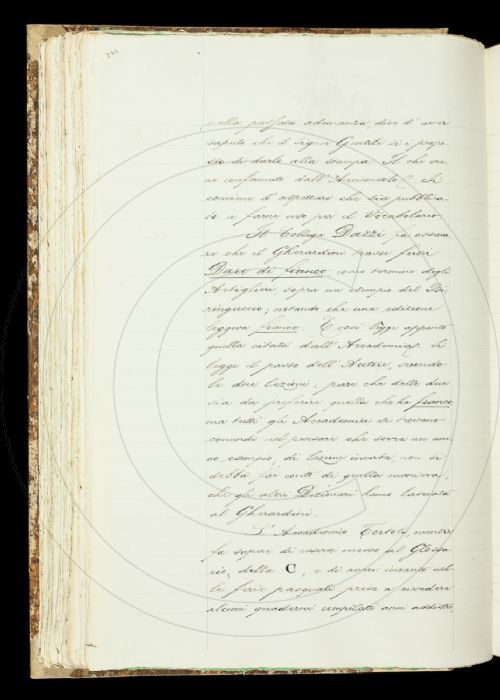 nella passata adunanza, dice d'aver
saputo che il Signor Gentile si è propo-
sto di darle alla stampa. Il che vie-
ne confermato dall'Arciconsolo. Si
conviene d'aspettare che sia pubblica-
to a farne uso per il Vocabolario.
Il Collega Dazzi fa osserva-
re che il Gherardini trasse fuori
Dare di fianco come termine degli
Artiglieri, sopra un esempio del Bi-
ringuccio; notando che una edizione
leggeva franco. E così legge appunto
quella citata dall'Accademia. Si
legge il passo dell'Autore, secondo
le due lezioni: pare che delle due
sia da preferire quella che ha franco,
ma tutti gli Accademici si trovano
concordi nel pensare che sovra un uni-
co esempio, di lezione incerta, non si
debba far conto di quella maniera,
che gli altri Dizionari hanno lasciata
al Gherardini.
L'Accademico Tortoli, mentre
fa sapere di essersi messo al Glossa-
rio della C, e di avere intanto nel-
le ferie pasquali preso a rivedere
alcuni quaderni compilati anni addietro,